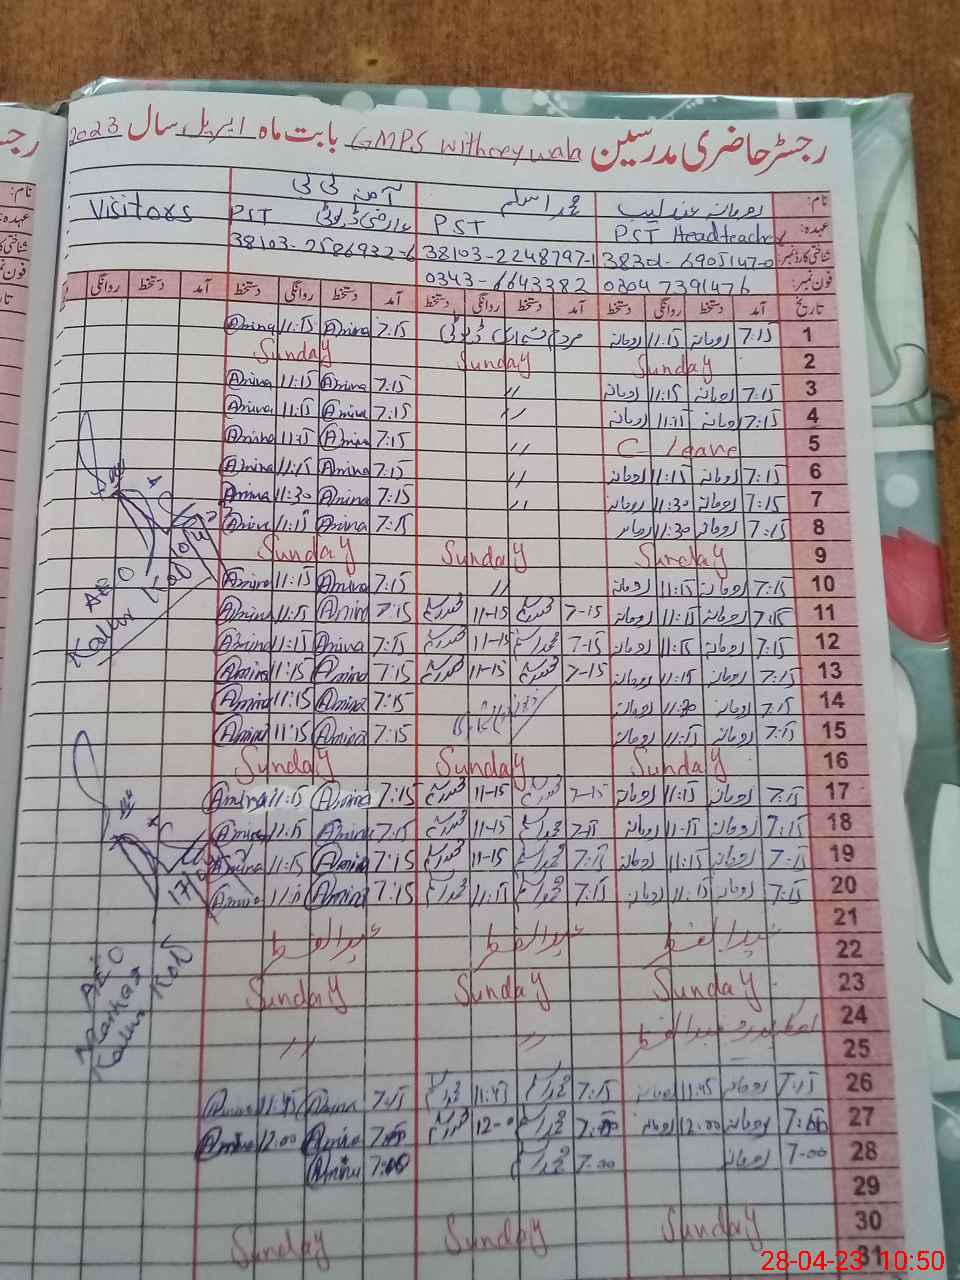 رجسٹر حاضری مدرسین GMPS witherywala بابت ماہ اپریل سال 2023
نام: رومانہ عندلیب محمد اسلم آمنہ بی بی
عہدہ: PST Headteacher PST PST عارضی ڈیوٹی Visitors
شناختی کارڈ نمبر: 38301-6905147-0 38103-2248797-1 38103-2586932-6
فون نمبر: 0304 7391476 0343-6643382
تاریخ آمد دستخط روانگی دستخط آمد دستخط روانگی دستخط آمد دستخط روانگی دستخط آمد دستخط روانگی
1 7:15 رومانہ 11:15 رومانہ مردم شماری ڈیوٹی 7:15 Amina 11:15 Amina
2 Sunday Sunday Sunday
3 7:15 رومانہ 11:15 رومانہ " 7:15 Amina 11:15 Amina
4 7:15 رومانہ 11:15 رومانہ " 7:15 Amina 11:15 Amina
5 C-leave " 7:15 Amina 11:15 Amina
6 7:15 رومانہ 11:15 رومانہ " 7:15 Amina 11:15 Amina
7 7:15 رومانہ 11:30 رومانہ " 7:15 Amina 11:30 Amina
8 7:15 رومانہ 11:30 رومانہ 7:15 Amina 11:15 Amina
9 Sunday Sunday Sunday
10 7:15 رومانہ 11:15 رومانہ " 7:15 Amina 11:15 Amina
11 7:15 رومانہ 11:15 رومانہ 7-15 محمد اسلم 11-15 محمد اسلم 7:15 Amina 11:15 Amina
12 7:15 رومانہ 11:15 رومانہ 7-15 محمد اسلم 11-15 محمد اسلم 7:15 Amina 11:15 Amina
13 7:15 رومانہ 11:15 رومانہ 7-15 محمد اسلم 11-15 محمد اسلم 7:15 Amina 11:15 Amina
14 7:15 رومانہ 11:30 رومانہ 7:15 Amina 11:15 Amina
15 7:15 رومانہ 11:15 رومانہ 7:15 Amina 11:15 Amina
16 Sunday Sunday Sunday
17 7:15 رومانہ 11:15 رومانہ 7-15 محمد اسلم 11-15 محمد اسلم 7:15 Amina 11:15 Amina
18 7:15 رومانہ 11:15 رومانہ 7-15 محمد اسلم 11-15 محمد اسلم 7:15 Amina 11:15 Amina
19 7:15 رومانہ 11:15 رومانہ 7:15 محمد اسلم 11-15 محمد اسلم 7:15 Amina 11:15 Amina
20 7:15 رومانہ 11:15 رومانہ 7:15 محمد اسلم 11:15 محمد اسلم 7:15 Amina 11:15 Amina
21
22 عیدالفطر عیدالفطر عیدالفطر
23 Sunday Sunday Sunday
24 عیدالفطر
25 " "
26 7:15 رومانہ 11:45 رومانہ 7:15 محمد اسلم 11:45 محمد اسلم 7:15 Amina 11:45 Amina
27 7:00 رومانہ 12:00 رومانہ 7:00 محمد اسلم 12-0 محمد اسلم 7:00 Amina 12:00 Amina
28 7-00 رومانہ 7-00 محمد اسلم 7:00 Amina
29
30 Sunday Sunday Sunday
31
AEO
Kallur Kot
AEO
Kallur Kot
28-04-23 10:50